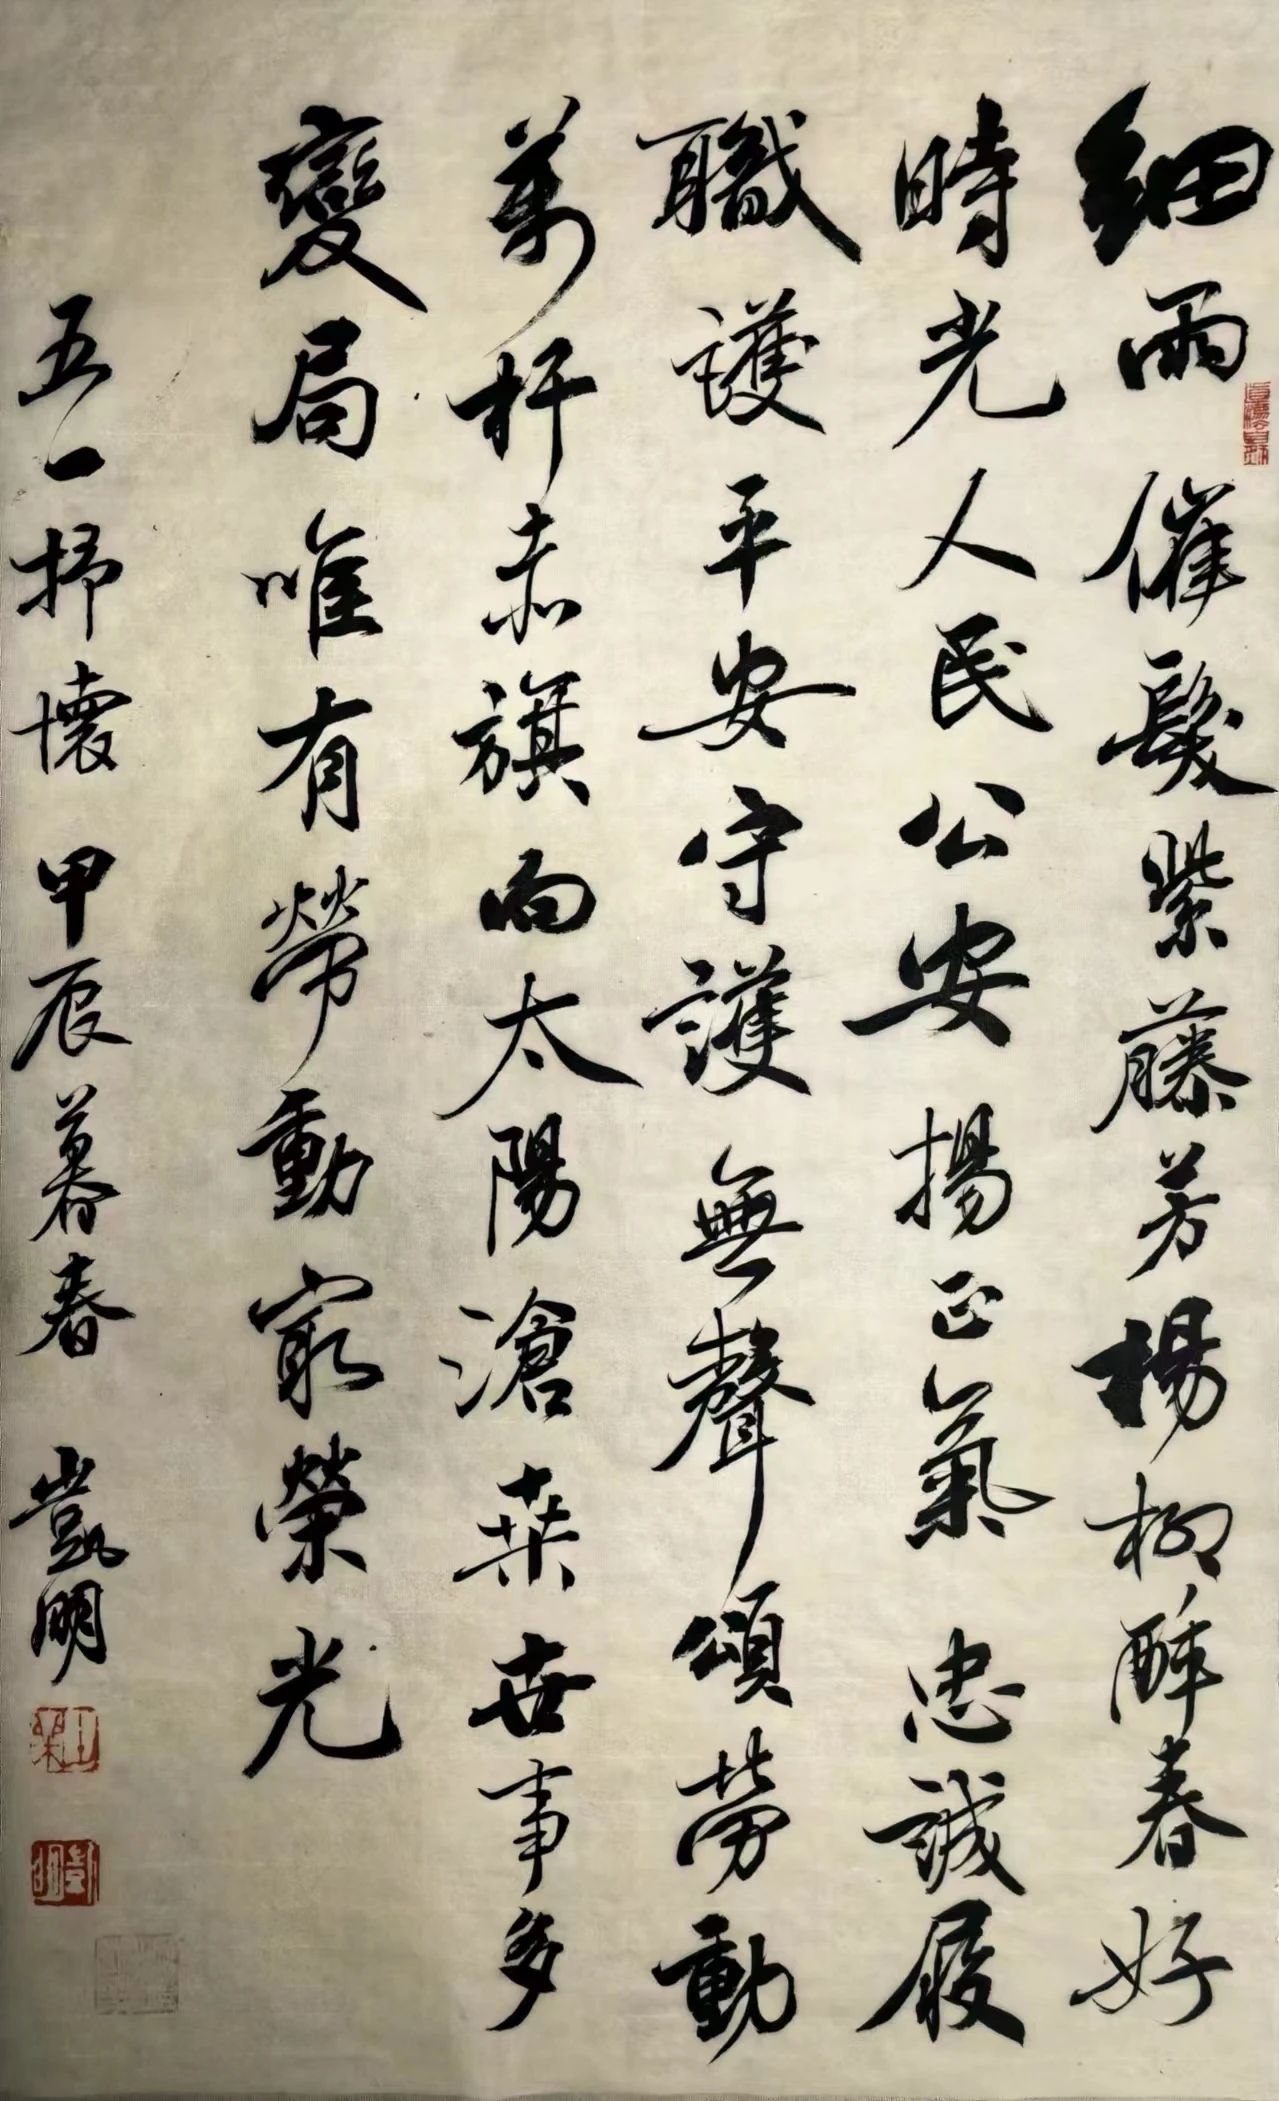 細雨催發紫藤芳楊柳醉春好
時光人民公安揚正氣忠誠履
職護平安守護無聲頌勞動
萬杆赤旗向太陽滄桑世事多
變局唯有勞動最榮光
五一抒懷甲辰暮春凱明